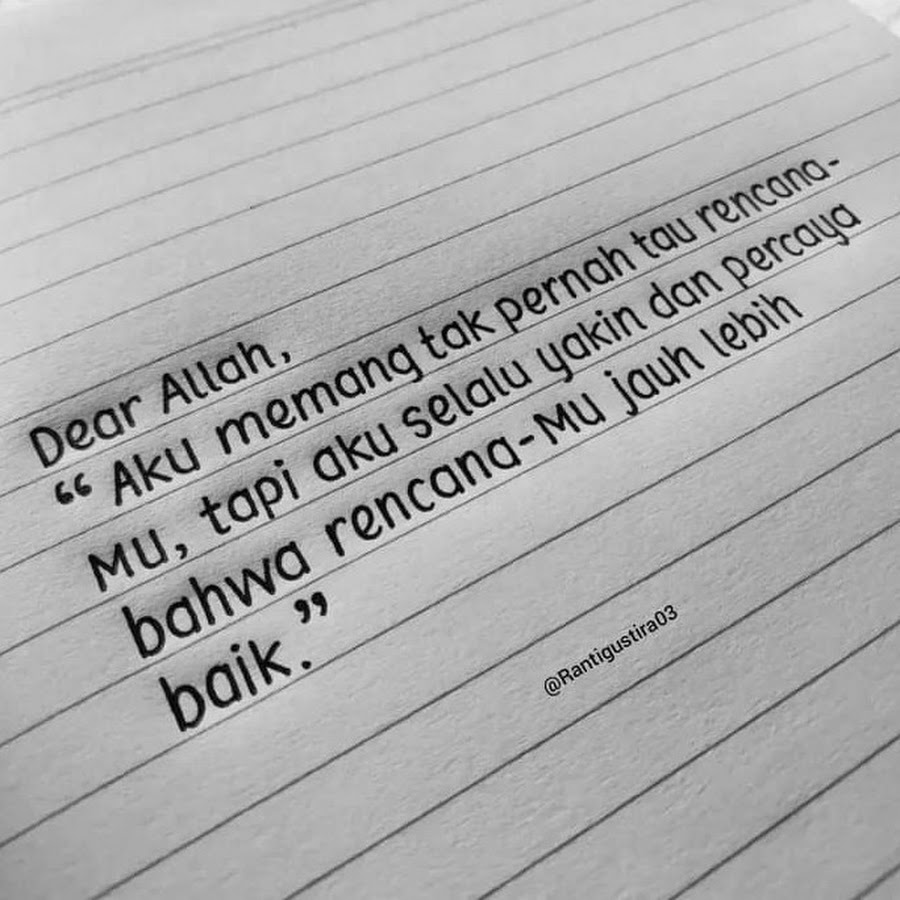 Dear Allah,
“ Aku memang tak pernah tau rencana-
Mu, tapi aku selalu yakin dan percaya
bahwa rencana-Mu jauh lebih
baik.”
@Rantigustira03